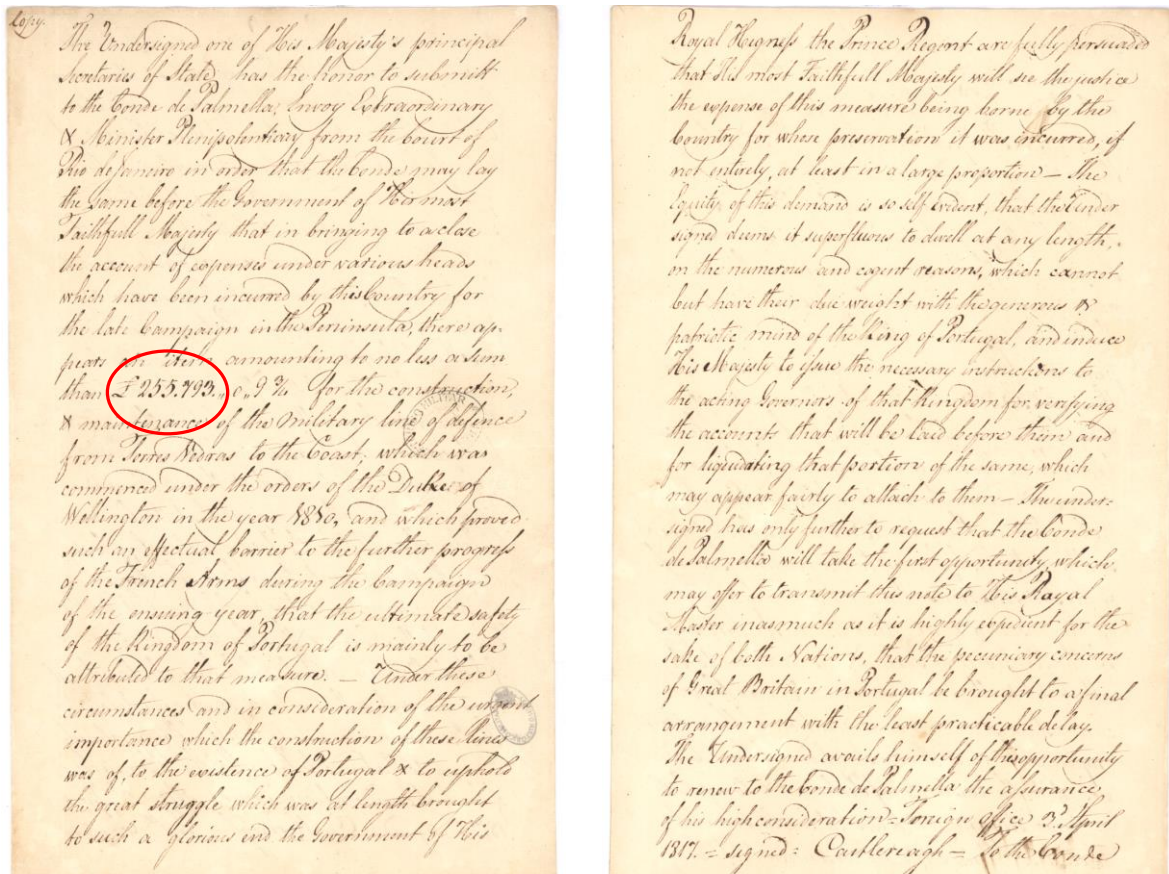 Copy.
The Undersigned one of His Majesty's principal
Secretaries of State, has the honor to submitt
to the Conde de Palmella, Envoy Extraordinary
& Minister Plenipotentiary from the Court of
Rio de Janeiro in order that the Conde may lay
the same before the Government of His most
Faithfull Majesty that in bringing to a close
the account of expenses under various heads
which have been incurred by this Country for
the late Campaign in the Peninsula, there ap-
pears an item amounting to no less a sum
than £ 255.793.,, 0,, 9 ¾ for the construction,
& maintenance of the military line of defence
from Torres Vedras to the Coast, which was
commenced under the orders of the Duke of
Wellington in the year 1810, and which proved
such an effectual barrier to the further progress
of the French Arms during the Campaign
of the ensuing year, that the ultimate safety
of the Kingdom of Portugal is mainly to be
attributed to that measure. — Under these
circumstances and in consideration of the urgent
importance which the construction of these lines
was of, to the existence of Portugal & to uphold
the great struggle which was at length brought
to such a glorious end the Government of His
Royal Higness the Prince Regent are fully persuaded
that His most Faithfull Majesty will see the justice
the expense of this measure being borne by the
Country for whose preservation it was incurred, if
not entirely, at least in a large proportion — The
Equity of this demand is so self evident, that the Under
signed deems it superfluous to dwell at any length,
on the numerous and cogent reasons, which cannot
but have their due weight with the generous &
patriotic mind of the King of Portugal, and induce
His Majesty to issue the necessary instructions to
the acting Governors of that Kingdom for verifying
the accounts that will be laid before them and
for liquidating that portion of the same, which
may appear fairly to attach to them — The under-
signed has only further to request that the Conde
de Palmella will take the first opportunity which
may offer to transmit this note to His Royal
Master inasmuch as it is highly expedient for the
sake of both Nations, that the pecuniary concerns
of Great Britain in Portugal be brought to a final
arrangement with the least practicable delay.
The Undersigned avails himself of this opportunity
to renew to the Conde de Palmella the assurance
of his high consideration = Foreign Office 3 April
1817. = signed: Castlereagh = To the Conde